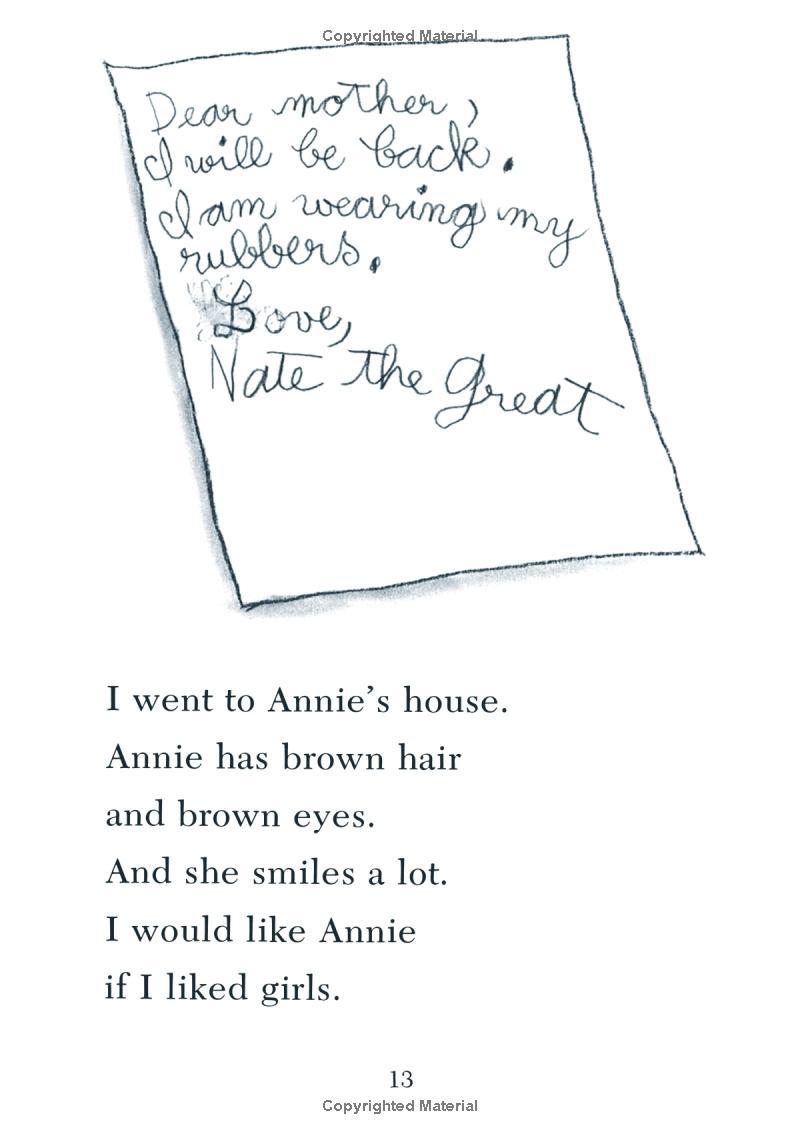 Copyrighted Material
Dear mother,
I will be back.
I am wearing my
rubbers.
Love,
Nate the Great
I went to Annie’s house.
Annie has brown hair
and brown eyes.
And she smiles a lot.
I would like Annie
if I liked girls.
13
Copyrighted Material